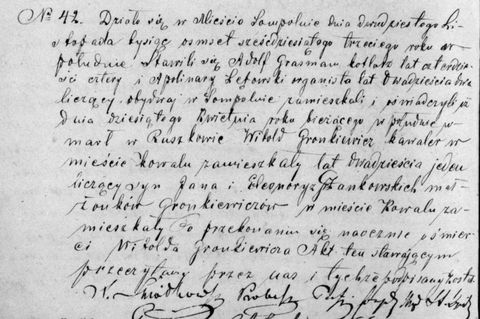 No 42. Działo się w Mieście Sompolnie dnia dwudziestego Li-
stopada tysiąc osmset sześćdziesiątego trzeciego roku w
południe Stawili się Adolf Grasman kotlarz lat czterdzie-
ści cztery i Apolinary Łętowski organista lat dwadzieścia dwa
liczący, obydway w Sompolnie zamieszkali i oświadczyli iż
dnia dziesiątego Kwietnia roku bieżącego w południe u-
marł w Ruszkowie Witold Gronkiewicz kawaler w
mieście Kowalu zamieszkały lat dwadzieścia jeden
liczący syn Jana i Eleonory z Stankowskich mał-
żonków Gronkiewiczów w mieście Kowalu za-
mieszkały Po przekonaniu się naocznie o śmier-
ci Witolda Gronkiewicza Akt ten stawającym
przeczytany przez nas i tychże podpisany został